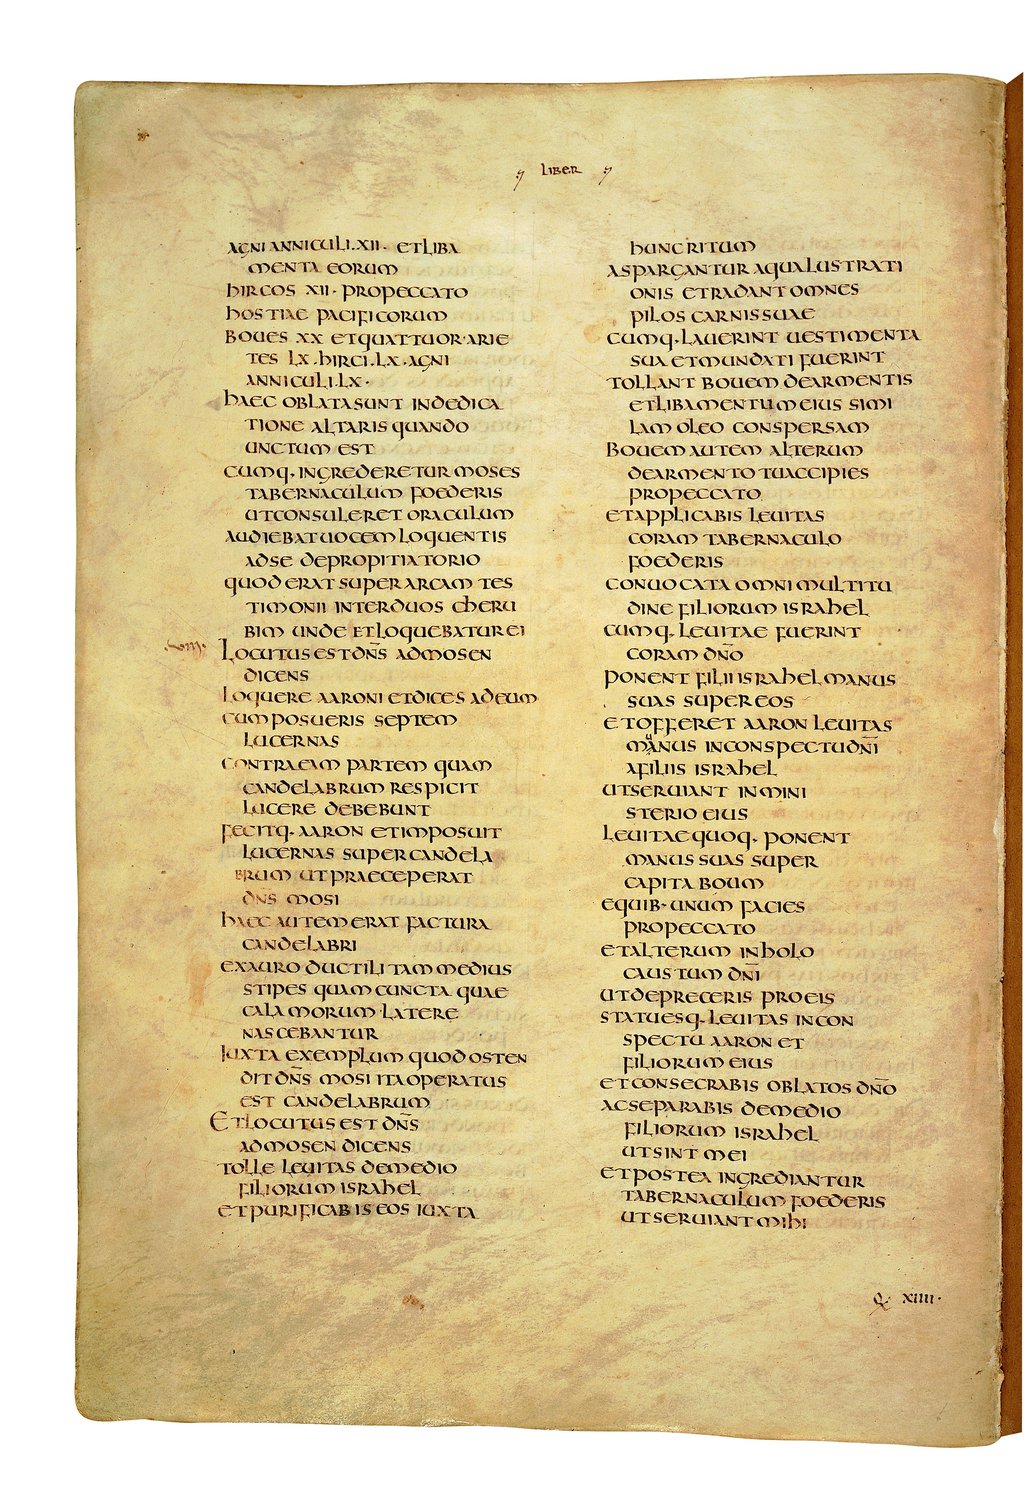 LIBER
AGNI ANNICULI·XII· ET LIBA
MENTA EORUM
HIRCOS XII· PRO PECCATO
HOSTIAE PACIFICORUM
BOUES XX ET QUATTUOR·ARIE
TES LX·HIRCI·LX·AGNI
ANNICULI·LX·
HAEC OBLATA SUNT IN DEDICA
TIONE ALTARIS QUANDO
UNCTUM EST
CUMQ· INGREDERETUR MOSES
TABERNACULUM FOEDERIS
UT CONSULERET ORACULUM
AUDIEBAT UOCEM LOQUENTIS
AD SE DE PROPITIATORIO
QUOD ERAT SUPER ARCAM TES
TIMONII INTER DUOS CHERU
BIM UNDE ET LOQUEBATUR EI
LOCUTUS EST DN̄S AD MOSEN
DICENS
LOQUERE AARONI ET DICES AD EUM
CUM POSUERIS SEPTEM
LUCERNAS
CONTRA EAM PARTEM QUAM
CANDELABRUM RESPICIT
LUCERE DEBEBUNT
FECITQ· AARON ET IMPOSUIT
LUCERNAS SUPER CANDELA
BRUM UT PRAECEPERAT
DN̄S MOSI
HAEC AUTEM ERAT FACTURA
CANDELABRI
EX AURO DUCTILI TAM MEDIUS
STIPES QUAM CUNCTA QUAE
CALAMORUM·LATERE
NASCEBANTUR
IUXTA EXEMPLUM QUOD OSTEN
DIT DN̄S MOSI ITA OPERATUS
EST CANDELABRUM
ET LOCUTUS EST DN̄S
AD MOSEN DICENS
TOLLE LEUITAS DE MEDIO
FILIORUM ISRAHEL
ET PURIFICABIS EOS IUXTA
HUNC RITUM
ASPARGANTUR AQUA LUSTRATI
ONIS ET RADANT OMNES
PILOS CARNIS SUAE
CUMQ· LAUERINT UESTIMENTA
SUA ET MUNDATI FUERINT
TOLLANT BOUEM DE ARMENTIS
ET LIBAMENTUM EIUS SIMI
LAM OLEO CONSPERSAM
BOUEM AUTEM ALTERUM
DE ARMENTO TU ACCIPIES
PRO PECCATO
ET APPLICABIS LEUITAS
CORAM TABERNACULO
FOEDERIS
CONUOCATA OMNI MULTITU
DINE FILIORUM ISRAHEL
CUMQ· LEUITAE FUERINT
CORAM DN̄O
PONENT FILII ISRAHEL MANUS
SUAS SUPER EOS
ET OFFERET AARON LEUITAS
MANUS IN CONSPECTU DN̄I
A FILIIS ISRAHEL
UT SERUIANT IN MINI
STERIO EIUS
LEUITAE QUOQ· PONENT
MANUS SUAS SUPER
CAPITA BOUM
E QUIB· UNUM FACIES
PRO PECCATO
ET ALTERUM IN HOLO
CAUSTUM DN̄I
UT DEPRECERIS PRO EIS
STATUESQ· LEUITAS IN CON
SPECTU AARON ET
FILIORUM EIUS
ET CONSECRABIS OBLATOS DN̄O
AC SEPARABIS DE MEDIO
FILIORUM ISRAHEL
UT SINT MEI
ET POSTEA INGREDIANTUR
TABERNACULUM FOEDERIS
UT SERUIANT MIHI
Q· XIIII·